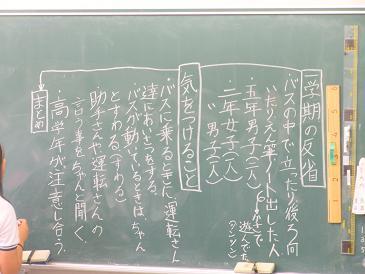 一学期の反省
・バスの中で立ったり後ろ向
いたりえん筆ノート出した人
・五年男子(二人)
・二年女子(二人)
〃男子(一人)
気をつけること
・バスに乗るとき、運転さん
達にあいさつをする。
・バスが動いているときは、ちゃん
とすわる。(すわる)
・助手さんや運転さんの
言う事をちゃんと聞く。
・高学年が注意し合う。
まとめ